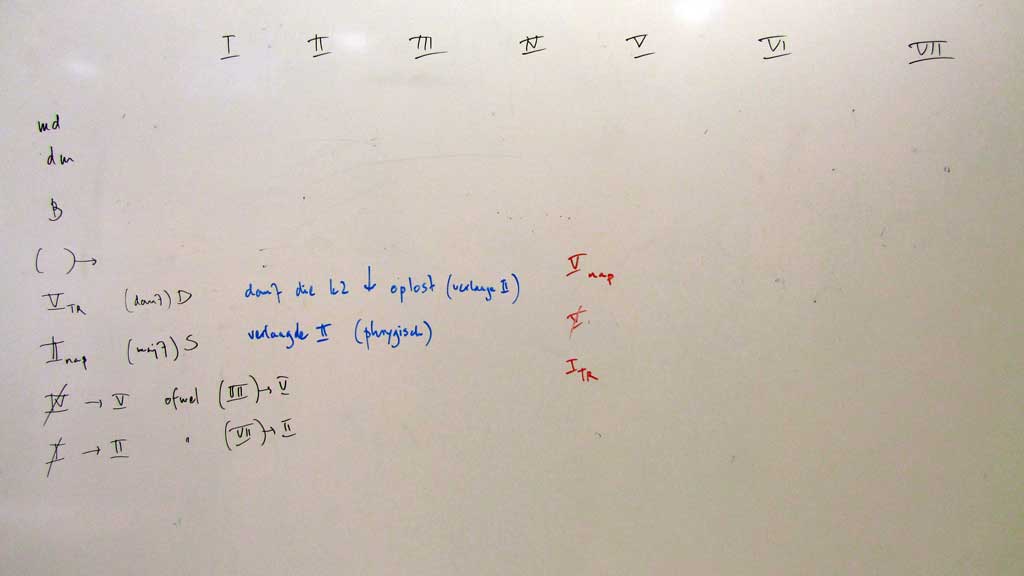 I II III IV V VI VII
md
dm
B
( )→
V TR (dom7) D dom7 die k2 ↓ oplost (verlaagde II) V nap
II nap (maj7) S verlaagde II (phrygisch) V
I TR
IV → V ofwel (VII)→ V
I → II " (VII)→ II